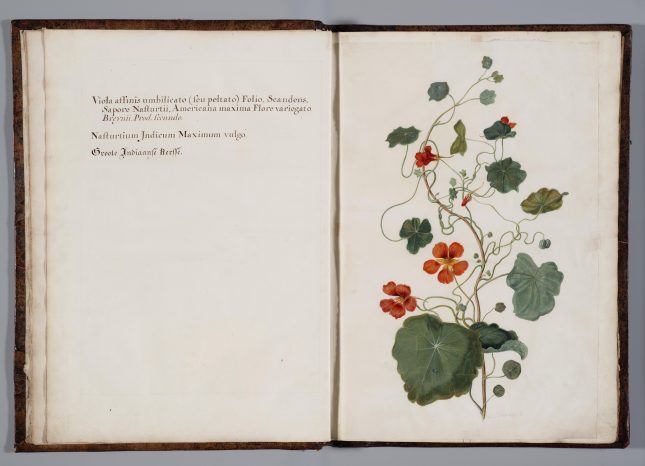 Viola affinis umbilicato (seu peltato) Folio, Scandens,
Sapore Nasturtii, Americana maxima Flore variegato.
Breynii. Prod. secundo.
Nasturtium Jndicum Maximum vulgo.
Groote Jndiaanse Kersse.